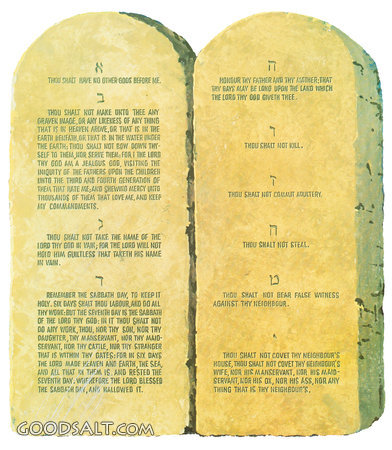 א
THOU SHALT HAVE NO OTHER GODS BEFORE ME.
ב
THOU SHALT NOT MAKE UNTO THEE ANY
GRAVEN IMAGE, OR ANY LIKENESS OF ANY THING
THAT IS IN HEAVEN ABOVE, OR THAT IS IN THE
EARTH BENEATH, OR THAT IS IN THE WATER UNDER
THE EARTH: THOU SHALT NOT BOW DOWN THY-
SELF TO THEM, NOR SERVE THEM: FOR I THE LORD
THY GOD AM A JEALOUS GOD, VISITING THE
INIQUITY OF THE FATHERS UPON THE CHILDREN
UNTO THE THIRD AND FOURTH GENERATION OF
THEM THAT HATE ME; AND SHEWING MERCY UNTO
THOUSANDS OF THEM THAT LOVE ME, AND KEEP
MY COMMANDMENTS.
ג
THOU SHALT NOT TAKE THE NAME OF THE
LORD THY GOD IN VAIN; FOR THE LORD WILL NOT
HOLD HIM GUILTLESS THAT TAKETH HIS NAME
IN VAIN.
ד
REMEMBER THE SABBATH DAY, TO KEEP IT
HOLY. SIX DAYS SHALT THOU LABOUR, AND DO ALL
THY WORK: BUT THE SEVENTH DAY IS THE SABBATH
OF THE LORD THY GOD: IN IT THOU SHALT NOT
DO ANY WORK, THOU, NOR THY SON, NOR THY
DAUGHTER, THY MANSERVANT, NOR THY MAID-
SERVANT, NOR THY CATTLE, NOR THY STRANGER
THAT IS WITHIN THY GATES: FOR IN SIX DAYS
THE LORD MADE HEAVEN AND EARTH, THE SEA,
AND ALL THAT IN THEM IS, AND RESTED THE
SEVENTH DAY: WHEREFORE THE LORD BLESSED
THE SABBATH DAY, AND HALLOWED IT.
ה
HONOUR THY FATHER AND THY MOTHER: THAT
THY DAYS MAY BE LONG UPON THE LAND WHICH
THE LORD THY GOD GIVETH THEE.
ו
THOU SHALT NOT KILL.
ז
THOU SHALT NOT COMMIT ADULTERY.
ח
THOU SHALT NOT STEAL.
ט
THOU SHALT NOT BEAR FALSE WITNESS
AGAINST THY NEIGHBOUR.
י
THOU SHALT NOT COVET THY NEIGHBOUR'S
HOUSE, THOU SHALT NOT COVET THY NEIGHBOUR'S
WIFE, NOR HIS MANSERVANT, NOR HIS MAID-
SERVANT, NOR HIS OX, NOR HIS ASS, NOR ANY
THING THAT IS THY NEIGHBOUR'S.
GOODSALT.COM